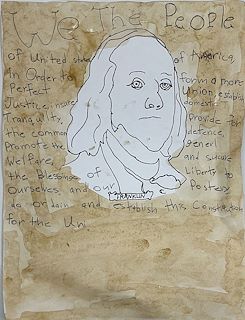 We The People
of United states of America,
In Order to form a more
Perfect Union, establish
Justice, insure domestic
Tranquilty, Provide for
the common defence,
Promote the generl
Welfare, and sucure
the Blessings of Liberty to
Ourselves and our Postery
do ordain and establish this Constitution
for the Uni
FRANKLIN